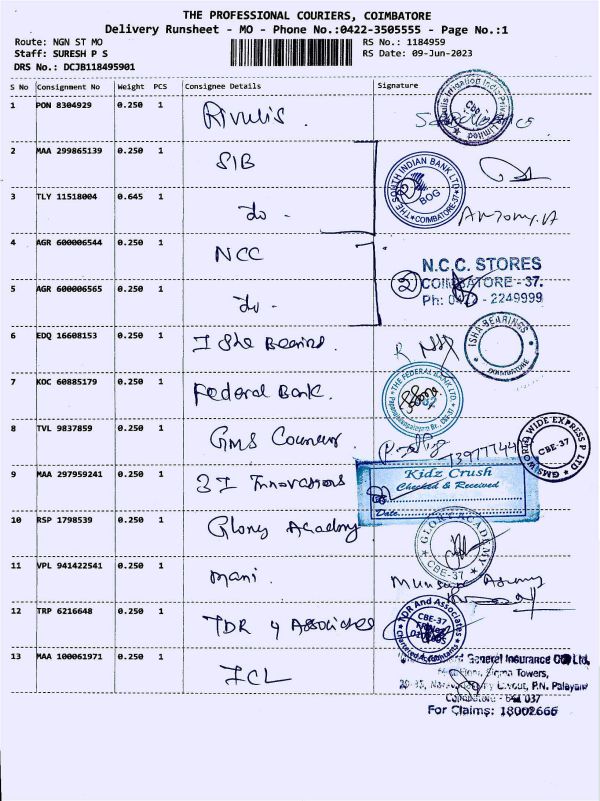 THE PROFESSIONAL COURIERS, COIMBATORE
Delivery Runsheet - MO - Phone No.:0422-3505555 - Page No.:1
Route: NGN ST MO
RS No.: 1184959
Staff: SURESH P S
RS Date: 09-Jun-2023
DRS No.: DCJB118495901
S No Consignment No Weight PCS Consignee Details Signature
1 PON 8304929 0.250 1 Rivulis.
2 MAA 299865139 0.250 1 SIB
THE SOUTH INDIAN BANK LTD
BOG
COIMBATORE-37
3 TLY 11518004 0.645 1 do -
Antony.A
4 AGR 600006544 0.250 1 NCC
N.C.C. STORES
COIMBATORE - 37.
Ph: 0422 - 2249999
5 AGR 600006565 0.250 1 do -
2
6 EDQ 16608153 0.250 1 Isha Bearing.
ISHA BEARINGS
COIMBATORE
7 KOC 60885179 0.250 1 Federal Bank.
THE FEDERAL BANK LTD.
8 TVL 9837859 0.250 1 GMS Courier.
GMS WORLD WIDE EXPRESS P LTD
CBE-37
9 MAA 297959241 0.250 1 3I Innovations
Kidz Crush
Checked & Received
Date
10 RSP 1798539 0.250 1 Glory Academy
GLORY ACADEMY
CBE-37
11 VPL 941422541 0.250 1 Mani.
12 TRP 6216648 0.250 1 TDR & Associates
TDR And Associates
CBE-37
Chartered Accountants
13 MAA 100061971 0.250 1 ICL
General Insurance Co Ltd,
Towers,
Layout, P.N. Palayam
Coimbatore - 641 037
For Claims: 18002666